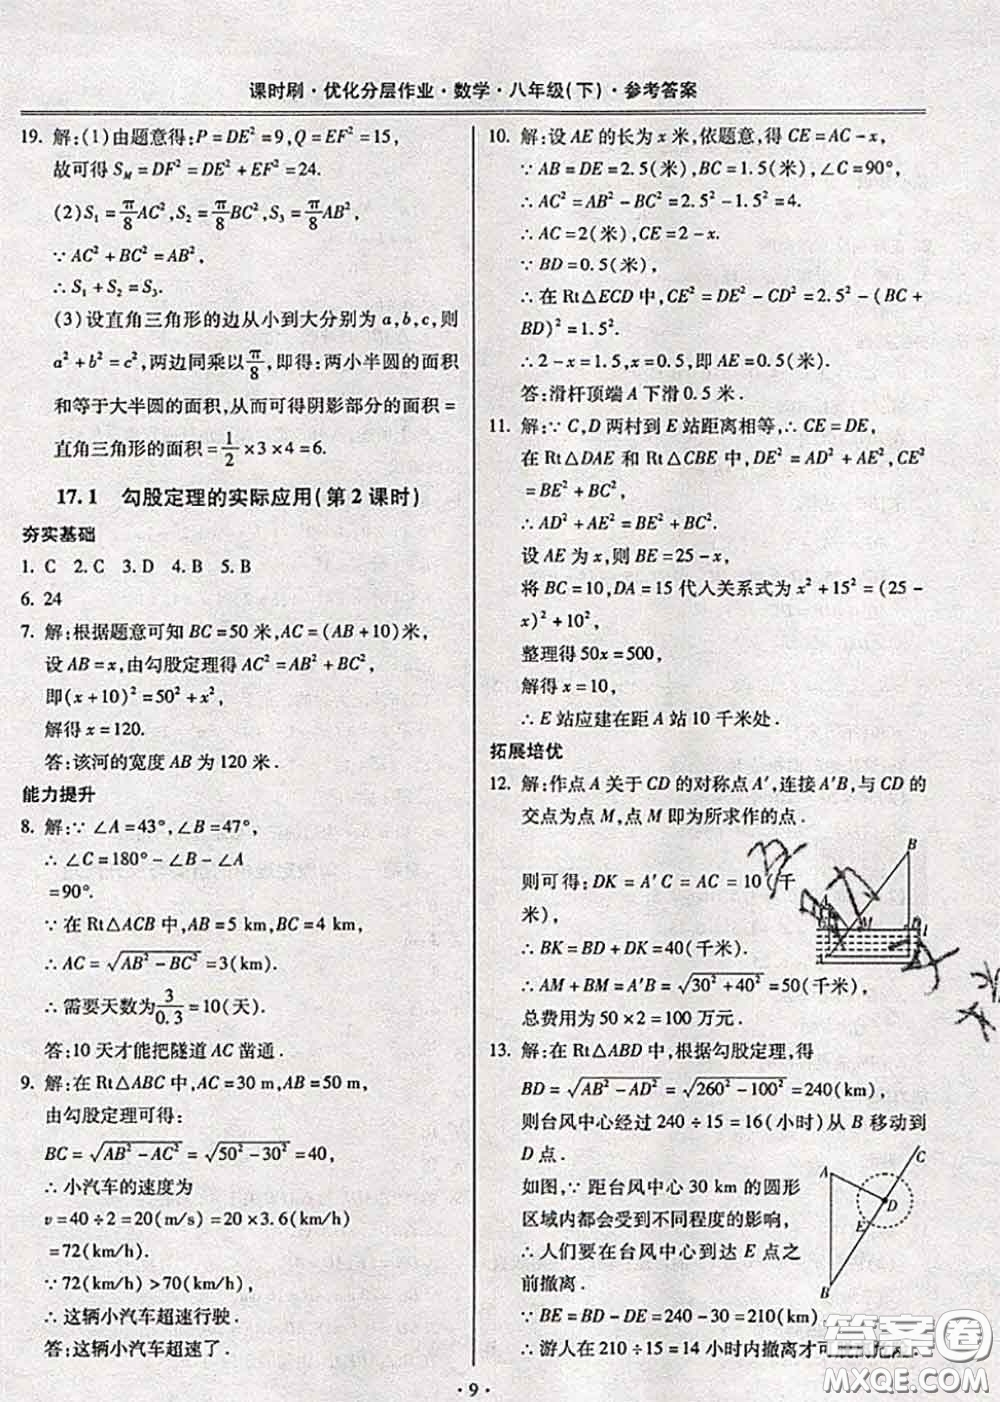 课时刷·优化分层作业·数学·八年级(下)·参考答案
19. 解:(1)由题意得:P=DE²=9,Q=EF²=15,
故可得 S_M=DF²=DE²+EF²=24.
(2)S₁=π/8 AC²,S₂=π/8 BC²,S₃=π/8 AB²,
∵AC²+BC²=AB²,
∴S₁+S₂=S₃.
(3)设直角三角形的边从小到大分别为 a,b,c,则
a²+b²=c²,两边同乘以π/8,即得:两小半圆的面积
和等于大半圆的面积,从而可得阴影部分的面积=
直角三角形的面积=1/2×3×4=6.
17.1 勾股定理的实际应用(第2课时)
夯实基础
1. C 2. C 3. D 4. B 5. B
6. 24
7. 解:根据题意可知 BC=50 米,AC=(AB+10)米,
设 AB=x,由勾股定理得 AC²=AB²+BC²,
即(x+10)²=50²+x²,
解得 x=120.
答:该河的宽度 AB 为 120 米.
能力提升
8. 解:∵∠A=43°,∠B=47°,
∴∠C=180°-∠B-∠A
=90°.
∵在 Rt△ACB 中,AB=5 km,BC=4 km,
∴AC=√(AB²-BC²)=3(km).
∴需要天数为3/0.3=10(天).
答:10 天才能把隧道 AC 凿通.
9. 解:在 Rt△ABC 中,AC=30 m,AB=50 m,
由勾股定理可得:
BC=√(AB²-AC²)=√(50²-30²)=40,
∴小汽车的速度为
v=40÷2=20(m/s)=20×3.6(km/h)
=72(km/h).
∵72(km/h)>70(km/h),
∴这辆小汽车超速行驶.
答:这辆小汽车超速了.
10. 解:设 AE 的长为 x 米,依题意,得 CE=AC-x,
∵AB=DE=2.5(米),BC=1.5(米),∠C=90°,
∴AC²=AB²-BC²=2.5²-1.5²=4.
∴AC=2(米),CE=2-x.
∵BD=0.5(米),
∴在 Rt△ECD 中,CE²=DE²-CD²=2.5²-(BC+
BD)²=1.5².
∴2-x=1.5,x=0.5,即 AE=0.5(米).
答:滑杆顶端 A 下滑 0.5 米.
11. 解:∵C,D 两村到 E 站距离相等,∴CE=DE,
在 Rt△DAE 和 Rt△CBE 中,DE²=AD²+AE²,
CE²=BE²+BC²,
∴AD²+AE²=BE²+BC².
设 AE 为 x,则 BE=25-x,
将 BC=10,DA=15 代入关系式为 x²+15²=(25-
x)²+10²,
整理得 50x=500,
解得 x=10,
∴E 站应建在距 A 站 10 千米处.
拓展培优
12. 解:作点 A 关于 CD 的对称点 A′,连接 A′B,与 CD 的
交点为点 M,点 M 即为所求作的点.
则可得:DK=A′C=AC=10(千
米),
∴BK=BD+DK=40(千米),
∴AM+BM=A′B=√(30²+40²)=50(千米),
总费用为 50×2=100 万元.
B
M
l
13. 解:在 Rt△ABD 中,根据勾股定理,得
BD=√(AB²-AD²)=√(260²-100²)=240(km),
则台风中心经过 240÷15=16(小时)从 B 移动到
D 点.
如图,∵距台风中心 30 km 的圆形
区域内都会受到不同程度的影响,
∴人们要在台风中心到达 E 点之
前撤离.
∵BE=BD-DE=240-30=210(km),
∴游人在210÷15=14 小时内撤离才可
A
C
D
E
B
答案卷
MXQE.COM
· 9 ·